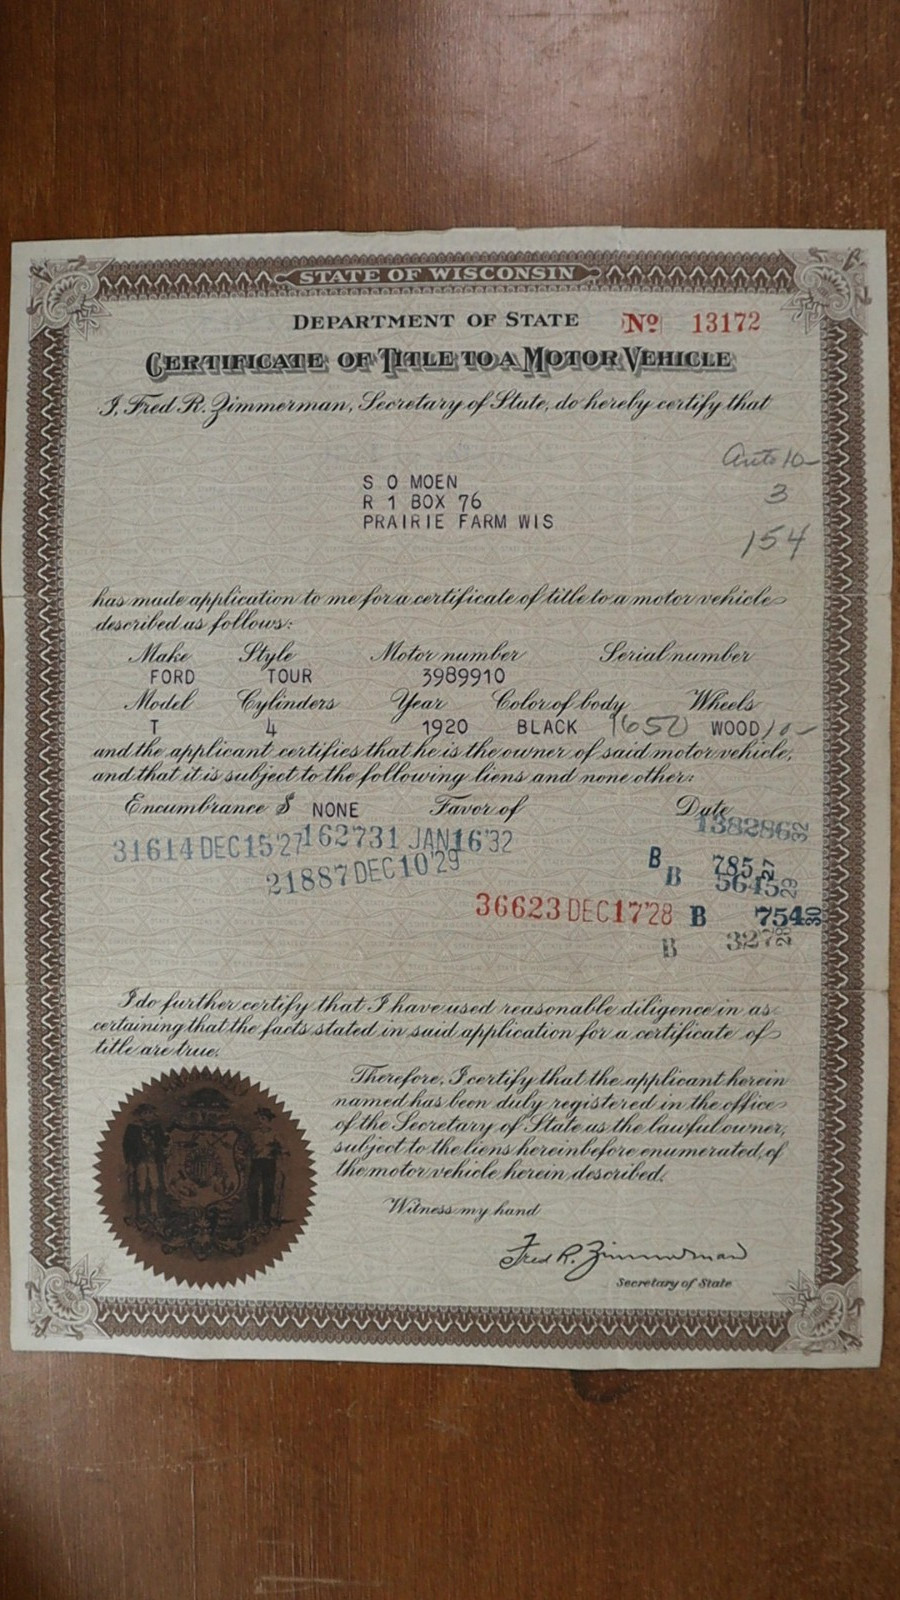 STATE OF WISCONSIN
DEPARTMENT OF STATE No 13172
CERTIFICATE OF TITLE TO A MOTOR VEHICLE
I, Fred R. Zimmerman, Secretary of State, do hereby certify that
S O MOEN
R 1 BOX 76
PRAIRIE FARM WIS
3
154
has made application to me for a certificate of title to a motor vehicle
described as follows:
Make Style Motor number Serial number
FORD TOUR 3989910
Model Cylinders Year Color of body Wheels
T 4 1920 BLACK 1650 WOOD
and the applicant certifies that he is the owner of said motor vehicle,
and that it is subject to the following liens and none other:
Encumbrance $ NONE Favor of Date
1382862 32
31614 DEC 15'27 162731 JAN 16'32
B 785 27
21887 DEC 10'29 B 5645 29
36623 DEC 17'28 B 754 30
B 327 28
I do further certify that I have used reasonable diligence in as-
certaining that the facts stated in said application for a certificate of
title are true.
Therefore, I certify that the applicant herein
named has been duly registered in the office
of the Secretary of State as the lawful owner,
subject to the liens hereinbefore enumerated, of
the motor vehicle herein described.
Witness my hand
Fred R. Zimmerman
Secretary of State